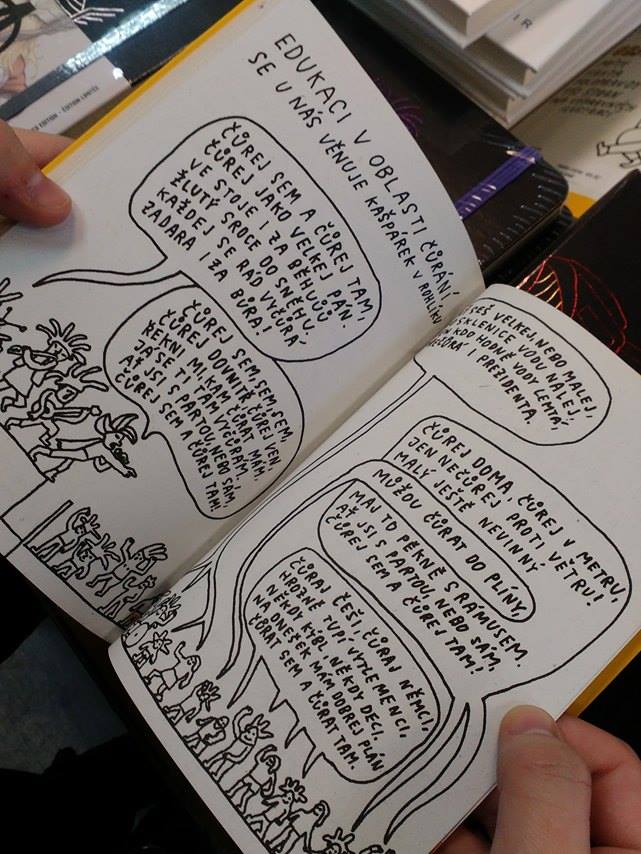 EDUKACI V OBLASTI ČŮRÁNÍ,
SE U NÁS VĚNUJE KAŠPÁREK V ROHLÍKU
ČŮREJ SEM A ČŮREJ TAM,
ČŮREJ JAKO VELKEJ PÁN.
VE STOJE I ZA BĚHUUŮ
ŽLUTÝ SRDCE DO SNĚHU.
KAŽDEJ SE RÁD VYČŮRÁ
ZADARA I ZA BŮRA!
ČŮREJ SEM, SEM, SEM, SEM,
ČŮREJ DOVNITŘ, ČŮREJ VEN,
ŘEKNI MI, KAM ČŮRAT MÁM,
JÁ SE TI TAM VYČŮRÁM.
AŤ JSI S PARTOU, NEBO SÁM,
ČŮREJ SEM A ČŮREJ TAM!
VELKEJ, NEBO MALEJ,
SKLENICE VODU NALEJ,
KDO HODNĚ VODY LEMTÁ,
I PREZIDENTA.
ČŮREJ DOMA, ČŮREJ V METRU,
JEN NEČŮREJ PROTI VĚTRU!
MALÝ JEŠTĚ NEVINNÝ
MŮŽOU ČŮRAT DO PLÍNY,
MAJ TO PĚKNĚ S RÁMUSEM.
AŤ JSI S PARTOU, NEBO SÁM,
ČŮREJ SEM A ČŮREJ TAM!
ČŮRAJ ČEŠI, ČŮRAJ NĚMCI,
HROZNĚ TUPÍ VYTLEMENCI,
NĚKDY KÝBL, NĚKDY DECI,
NA DNEŠEK MÁM DOBREJ PLÁN
ČŮRAT SEM A ČŮRAT TAM.